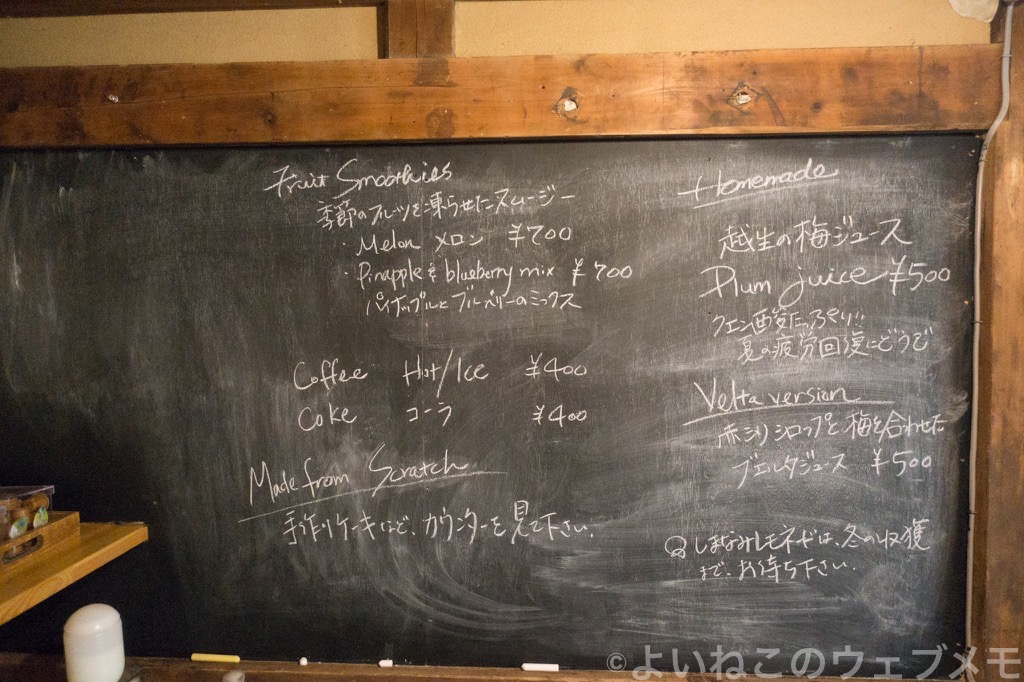 Fruit Smoothies
季節のフルーツを凍らせたスムージー
・Melon メロン ¥700
・Pinapple & blueberry mix ¥700
パイナップルとブルーベリーのミックス
Coffee Hot/Ice ¥400
Coke コーラ ¥400
Made from Scratch
手作りケーキなど、カウンターを見て下さい.
Homemade
越生の梅ジュース
Plum juice ¥500
クエン酸たっぷり!!
夏の疲労回復にどうぞ
Velta version
赤シソシロップと梅を合わせた
ブエルタジュース ¥500
しまなみレモネードは、冬の収獲
まで、お待ち下さい.
©よいねこのウェブメモ